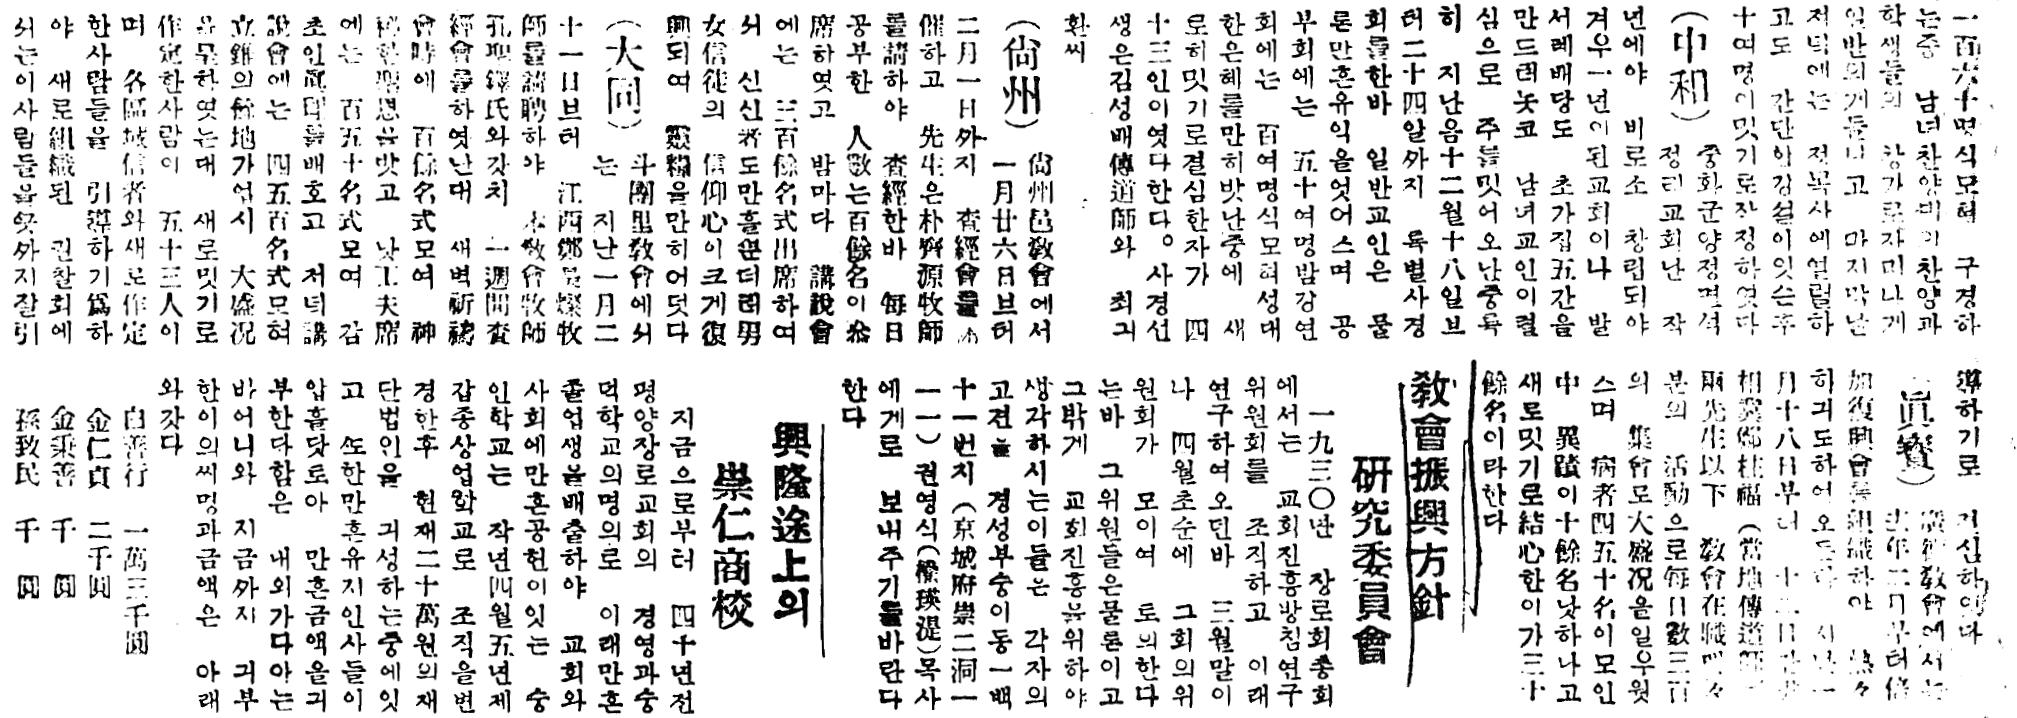 一百六十명식모혀 구경하
는중 남녀찬양대의찬양과
학생들의 창가로자미나게
일반의게들니고 마지막날
저녁에는 전목사에열렬하
고도 간단한강설이잇슨후
十여명이밋기로작정하엿다
(中和) 중화군양정면석
정리교회난 작
년에야 비로소 창립되야
겨우一년이된교회이나 발
서레배당도 초가집五간을
만드러놋코 남녀교인이렬
심으로 주를밋어오난중특
히 지난음十二월十八일브
터二十四일까지 특별사경
회를한바 일반교인은 물
론만흔유익을엇어스며 공
부회에는 五十여명밤강연
회에는 百여명식모혀성대
한은혜를만히밧난중에 새
로히밋기로결심한자가 四
十三인이엿다한다。사경선
생은김성배傳道師와 최긔
환씨
(尙州) 尙州邑敎會에서
一月廿六日브터
二月一日까지 査經會를
催하고 先生은朴齊源牧師
를請하야 査經한바 每日
공부한 人數는百餘名이參
席하엿고 밤마다 講說會
에는 三百餘名式出席하여
서 신신者도만흘뿐더러男
女信徒의 信仰心이크게復
興되여 靈糧을만히어덧다
(大同) 斗團里敎會에서
는 지난一月二
十一日브터 江西鄕 燦牧
師를請聘하야 本敎會牧師
孔聖鐸氏와갓치 一週間査
經會를하엿난대 새벽祈禱
會時에 百餘名式모여 神
秘한聖恩을밧고 낫工夫席
에는 百五十名式모여 감
초인眞理를배호고 저녁講
說會에는 四五百名式모혀
立錐의餘地가업시 大盛况
을呈하엿는대 새로밋기로
作定한사람이 五十三人이
며 各區域信者와새로作定
한사람들을 引導하기爲하
야 새로組織된 권찰회에
서는이사람들을 까지잘引
導하기로 결심하엿다
(眞寶) 敎會에서는
去年二月부터倍
加復興會를組織하야 熱々
하긔도하여오든
月十八日부터 十
相翼鄭桂福(當地傳道師)
兩先生以下 敎會在職
분의 活動으로每日數三百
의 集會로大盛况을일우웟
스며 病者四五十名이모인
中 異蹟이十餘名낫하나고
새로밋기로結心한이가三十
餘名이라한다
敎會振興方針
硏究委員會
一九三〇년 장로회총회
에서는 교회진흥방침연구
위원회를 조직하고 이래
연구하여오던바 三월말이
나 四월초순에 그회의위
원회가 모이여 토의한다
는바 그위원들은물론이고
그밖게 교회진흥을위하야
생각하시는이들은 각자의
고견을 경성부숭이동一백
十一번지(京城府崇二洞一
一一)권영식(權瑛湜)목사
에게로 보내주기를바란다
한다
興隆途上의
崇仁商校
지금으로부터 四十년전
평양장로교회의 경영과숭
덕학교의명의로 이래만흔
졸업생을배출하야 교회와
사회에만흔공헌이잇는 숭
인학교는 작년四월五년제
갑종상업학교로 조직을변
경한후 현재二十萬원의재
단법인을 긔성하는중에잇
고 또한만흔유지인사들이
압흘닷토아 만흔금액을긔
부한다함은 내외가다아는
바어니와 지금까지 긔부
한이의씨명과금액은 아래
와갓다
白善行 一萬三千圓
金仁貞 二千圓
金秉善 千 圓
孫致民 千 圓